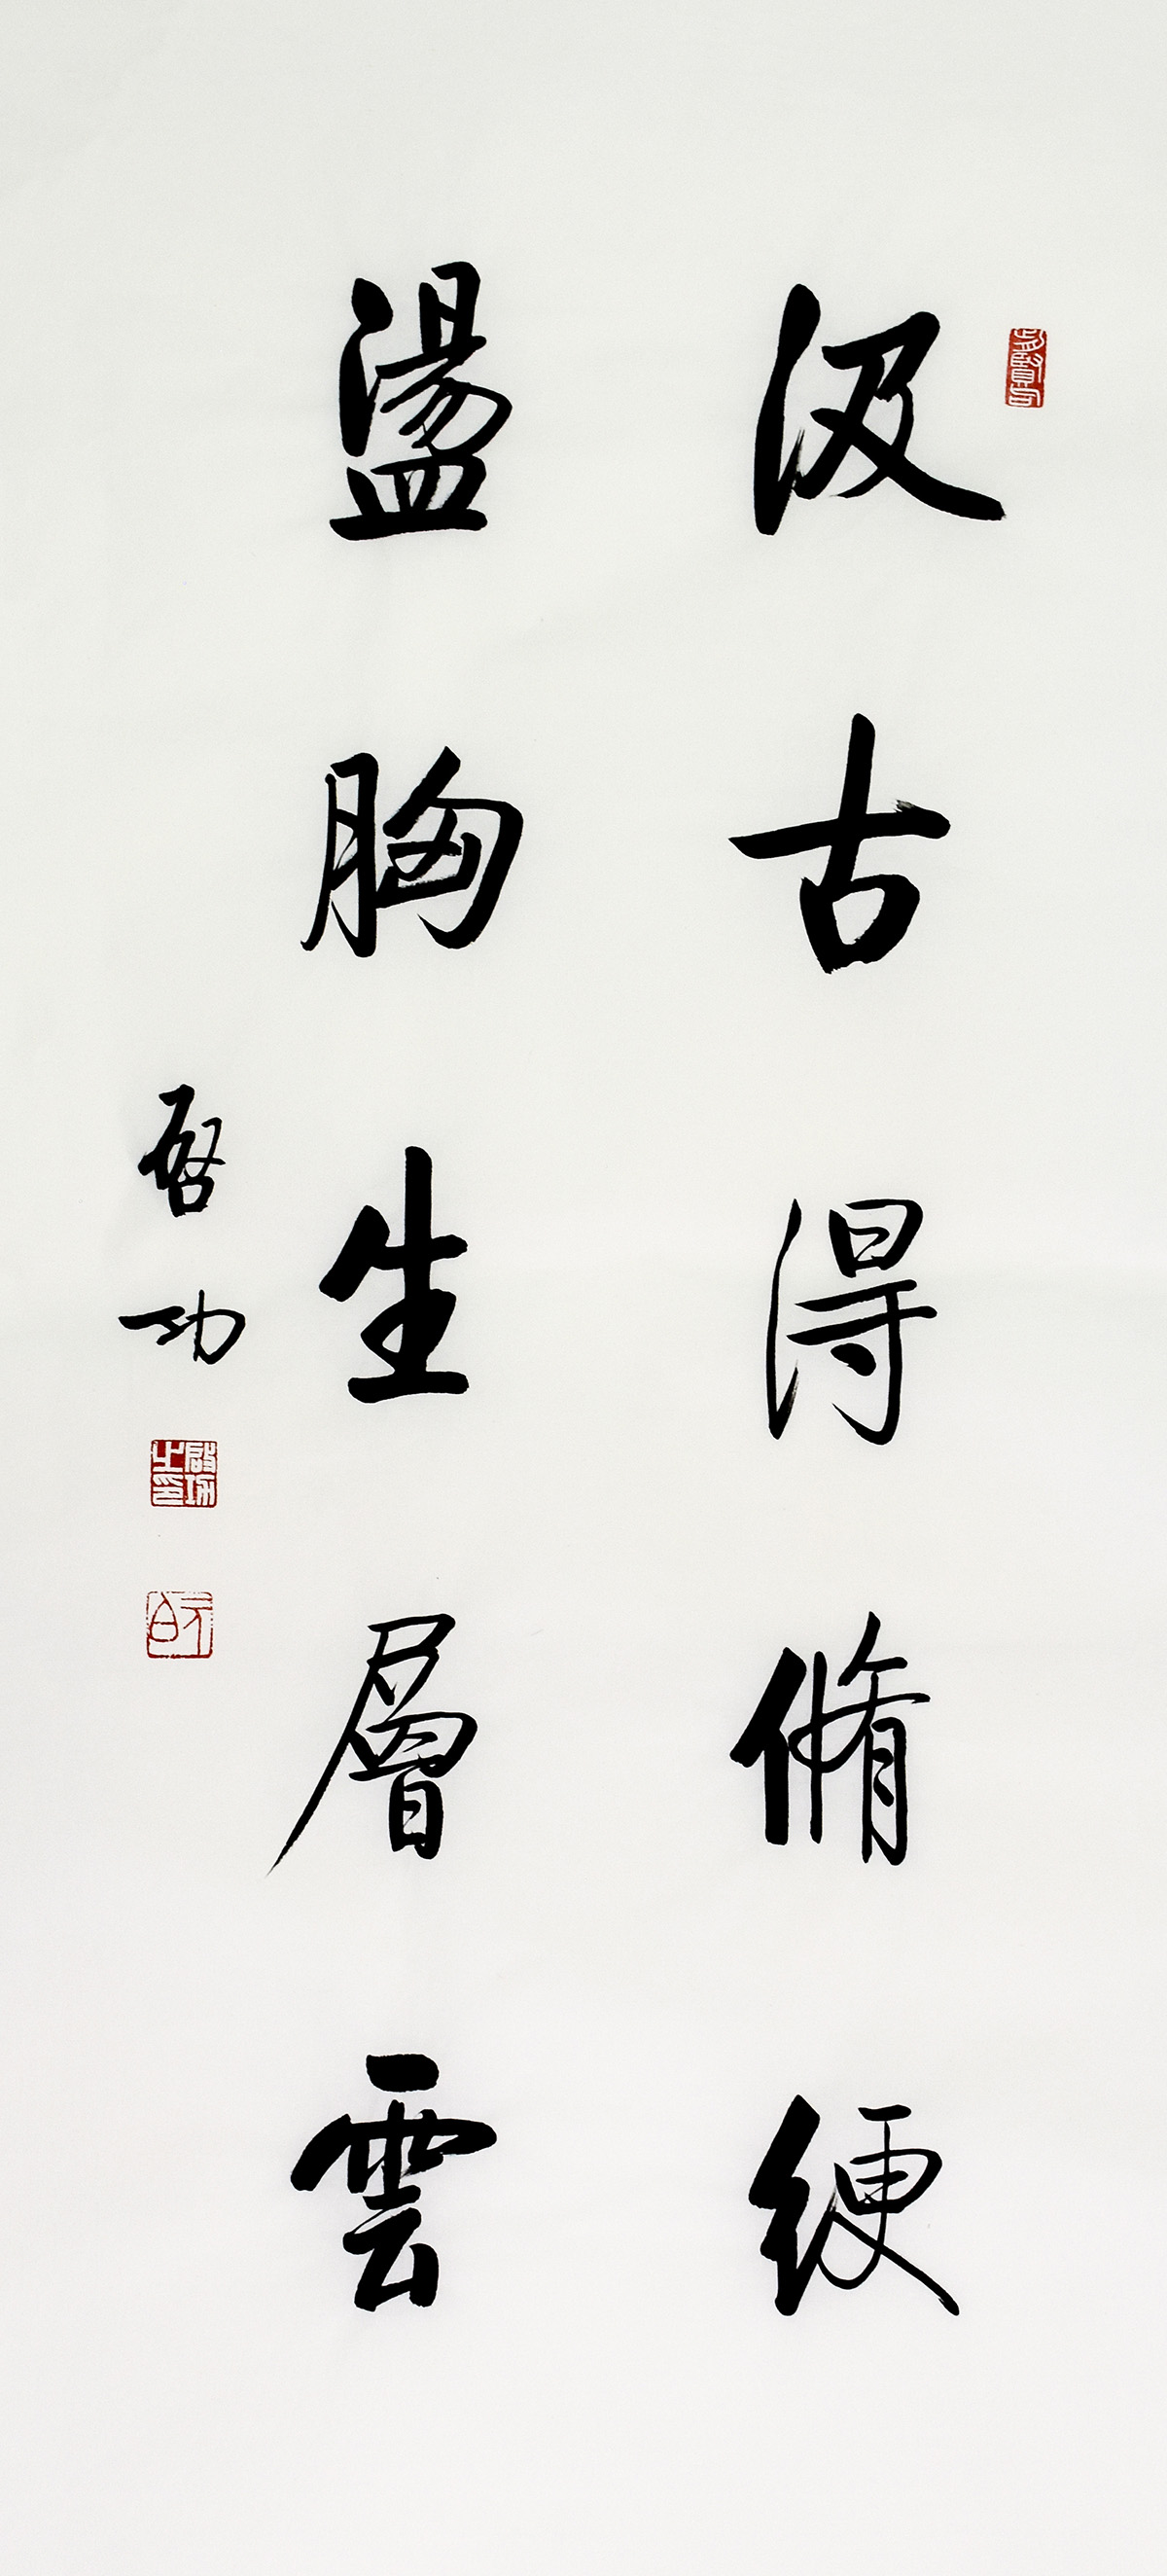 汲古得脩綆
盪胸生層雲
啓功
啓功之印
元白